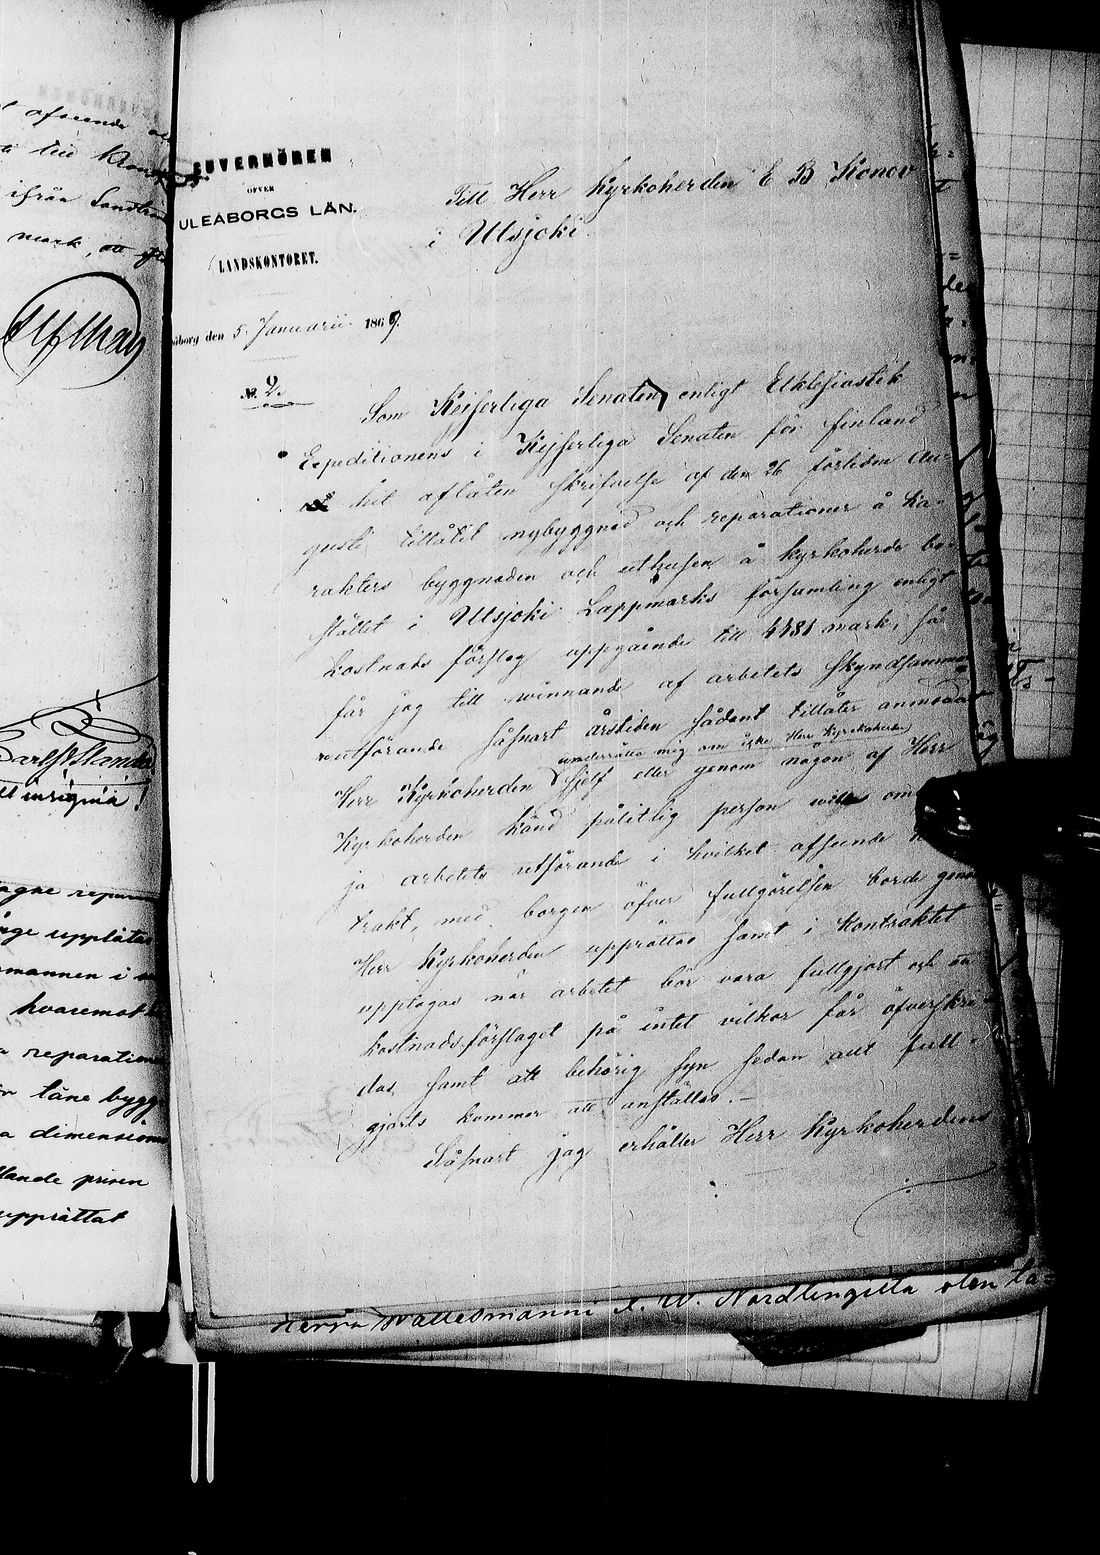 GUVERNÖREN
ÖFVER
ULEÅBORGS LÄN.
LANDSKONTORET.
Till Herr Kyrkoherden E B Konov
i Utsjoki
åborg den 5 Januarii 1869.
No. 2.
Som Kejserliga Senaten, enligt Ecklesiastik
Expeditionens i Kejserliga Senaten för Finland
het aflåten skrifvelse af den 26 förliden Au-
gusti tillåtit nybyggnad och reparationer å ka-
rakters byggnaden och uthusen å Kyrkoherde bo-
stället i Utsjoki Lappmarks församling enligt
kostnads förslag uppgående till 4481 mark, så
får jag till winnande af arbetets skyndsamma
utförande såsnart årstiden sådant tillåter anmoda
underrätta mig om icke Herr Kyrkoherden
Herr Kyrkoherden sjelf eller genom någon af Herr
Kyrkoherden känd pålitlig person will om
ja arbetets utförande i hvilket afseende
trakt, med borgen öfver fullgörelsen borde genom
Herr Kyrkoherden upprättas samt i kontraktet
upptagas när arbetet bör vara fullgjort och att
kostnadsförslaget på intet vilkor får öfverskri
das, samt att behörig syn sedan allt full-
gjorts kommer att anställas.-
Såsnart jag erhåller Herr Kyrkoherdens
afseende
till
ifrån
mark, att
insignia
hvaremot
reparation
byggn
dimension
priser
upprättat
Herra Wallesmanni A. W. Nordlingilta olen sa=